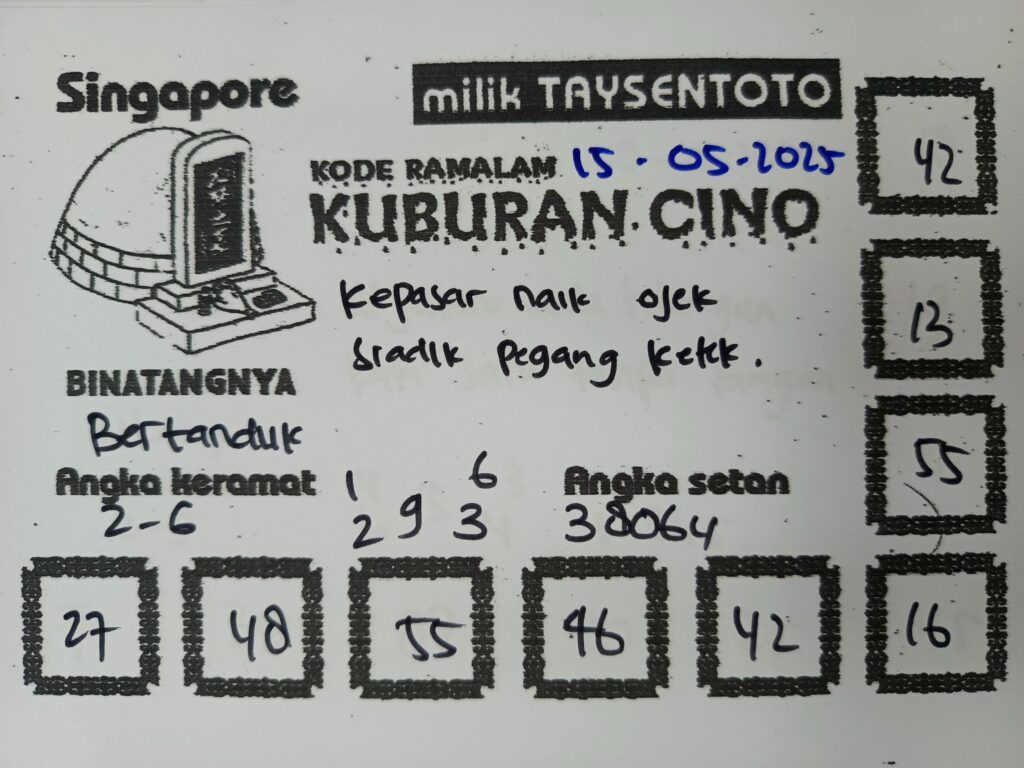 Singapore
milik TAYSENTOTO
KODE RAMALAM 15 - 05 - 2025
KUBURAN CINO
Kepasar naik ojek
Sradik pegang ketek.
BINATANGNYA
Bertanduk
Angka keramat
2-6
1 6
2 9 3
Angka setan
38064
42
13
55
27 48 55 46 42 16